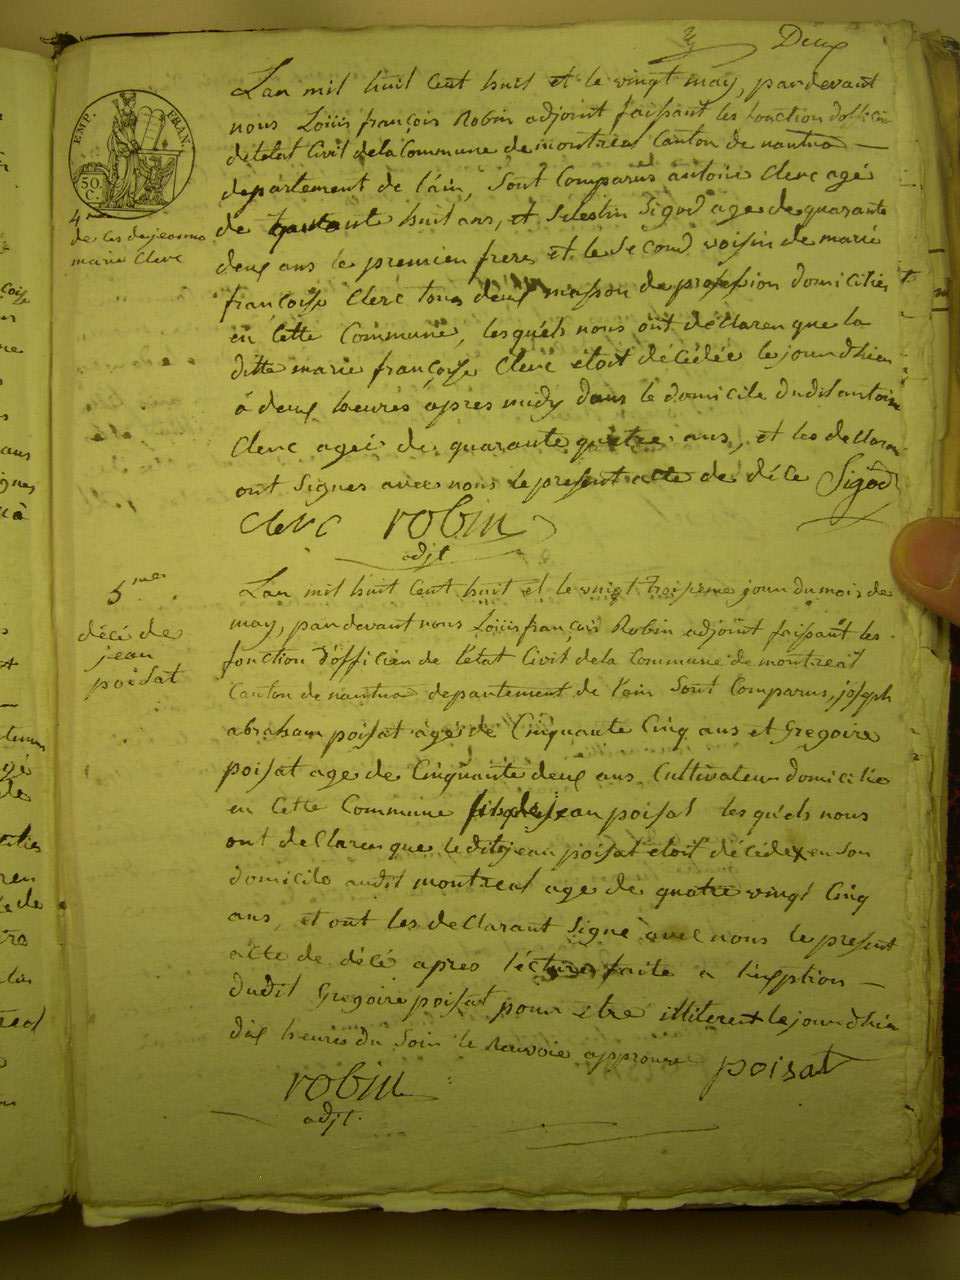 Deux
EMP. FRAN.
50. C.
Lan mil huil Cent huit et le vingt may, pardevant
nous Loüis françois Robin adjoint faissant les fonction dofficier
detelat Civil dela Commune de montreal Canton de nantua
departement de l'ain, Sont Comparus antoine Clerc agé
de huit ans, et Selestin Sigod age de quarante
deux ans le premien frere et le Second voisin de marie
françoise Clerc tous deux masson de profession domicilies
en Cette Commune, lesquels nous ont declaren que la
ditte marie françoise Clerc etoit décédée le jour dhien
à deux heures apres midy dans le domicile dudit antoine
Clerc ageé de quarante quatre ans, et les declaran
ont Signes avec nous le present acte de déce Sigod
Clerc robin
adjt
4me
marie Clerc
5me
décé de
jean
poisat
Lan mil huit Cent huit et le vingt troisieme jour du mois de
may, pardevant nous Loüis françois Robin adjoint faissant les
fonction d'officien de l'etat Civil dela Commune de montreal
Canton de nantua departement de l'ain Sont Comparus, joseph
abraham poisat agé de Cinquante Cinq ans et Gregoire
poisat age de Cinquante deux ans Cultivateur domicilie
en Cette Commune fils de jean poisat lesquels nous
ont declaren que ledit jean poisat etoit décéde en Son
domicile audit montreal age de quatre vingt Cinq
ans, et ont les declarant Signe avec nous le present
acte de décé apres lécture faite a l'exption
dudit Gregoire poisat pour etre illiteret le jour dhier
dix heures du Soir le Renvoie approuve poisat
robin
adjt.